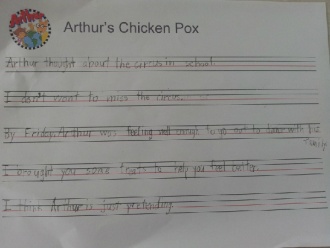 Arthur's Chicken Pox
Arthur thought about the circus in school
I don't want to miss the circus.
By Friday, Arthur was feeling well enough to go out to dinner with his
family
I brought you some treats to help you feel better.
I think Arthur is just pretending.